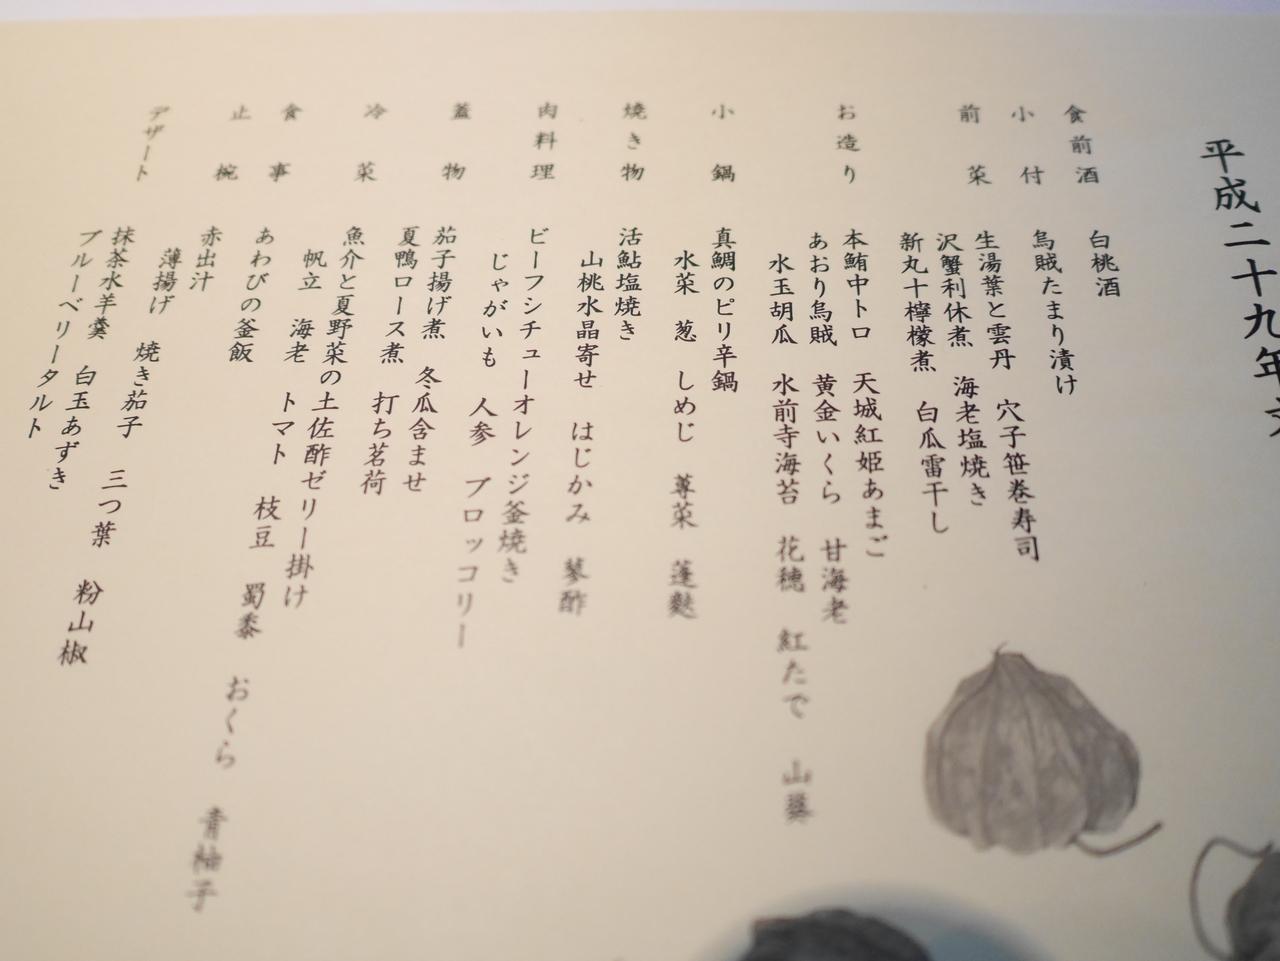 平成二十九年
食前酒　白桃酒
小付　烏賊たまり漬け
前菜　生湯葉と雲丹　穴子笹巻寿司
沢蟹利休煮　海老塩焼き
新丸十檸檬煮　白瓜雷干し
お造り　本鮪中トロ　天城紅姫あまご
あおり烏賊　黄金いくら　甘海老
水玉胡瓜　水前寺海苔　花穂　紅たで　山葵
小鍋　真鯛のピリ辛鍋
水菜　葱　しめじ　蓴菜　蓬麩
焼き物　活鮎塩焼き
山桃水晶寄せ　はじかみ　蓼酢
肉料理　ビーフシチューオレンジ釜焼き
じゃがいも　人参　ブロッコリー
蓋物　茄子揚げ煮　冬瓜含ませ
夏鴨ロース煮　打ち茗荷
冷菜　魚介と夏野菜の土佐酢ゼリー掛け
帆立　海老　トマト　枝豆　蜀黍　おくら　青柚子
食事　あわびの釜飯
止椀　赤出汁
薄揚げ　焼き茄子　三つ葉　粉山椒
デザート　抹茶水羊羹　白玉あずき
ブルーベリータルト